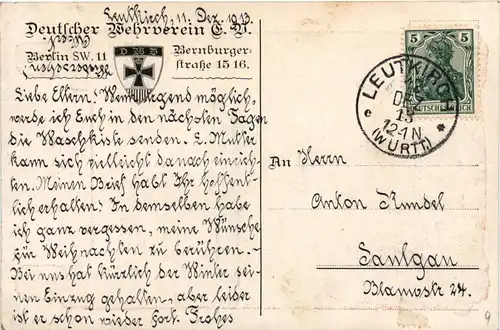 Leutkirch, 11. Dez. 1913.
Deutscher Wehrverein E. V.
Berlin SW. 11
Bernburger-
straße 15 16.
D W V
Liebe Eltern! Wenn irgend möglich,
werde ich Euch in den nächsten Tagen
die Waschkiste senden. L. Mutter
kann sich vielleicht danach einrich-
ten. Meinen Brief habt Ihr hoffent-
lich erhalten! In demselben habe
ich ganz vergessen, meine Wünsche
für Weihnachten zu berühren. –
Bei uns hat kürzlich der Winter sei-
nen Einzug gehalten, aber leider
ist er schon wieder fort. Frohes
5 5
DEUTSCHES REICH
LEUTKIRCH
DEZ
13
12-1 N
* (WÜRTT) *
An Herrn
Anton Kundel
Saulgau
Blauwstr. 24.
9